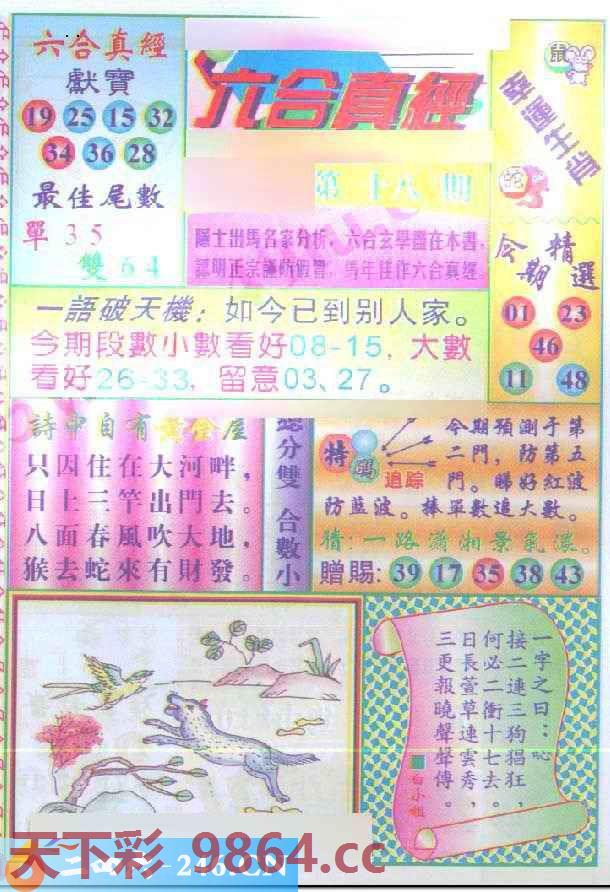 六合真經
獻寶
19 25 15 32
34 36 28
最佳尾數
單 3 5
雙 6 4
六合真經
第十八期
隱士出馬名家分析，六合玄學盡在本書，
認明正宗謹防假冒，馬年佳作六合真經。
鼠
幸運生肖
蛇
今期精選
01 23
46
11 48
一語破天機：如今已到别人家。
今期段數小數看好08-15，大數
看好26-33，留意03、27。
詩中自有黃金屋
只因住在大河畔，
日上三竿出門去。
八面春風吹大地，
猴去蛇來有財發。
總分雙 合數小
特碼
追踪
今期預測于第
二門，防第五
門。睇好紅波
防藍波。捧單數追大數。
猜：一路瀟湘景氣濃。
贈賜：39 17 35 38 43
一字之曰：吣
接二連三狗猖狂，
何必二衝十七去。
日長萱草連雲秀，
三更報曉聲聲傳。
白小姐
天下彩 9864.cc
246.CN